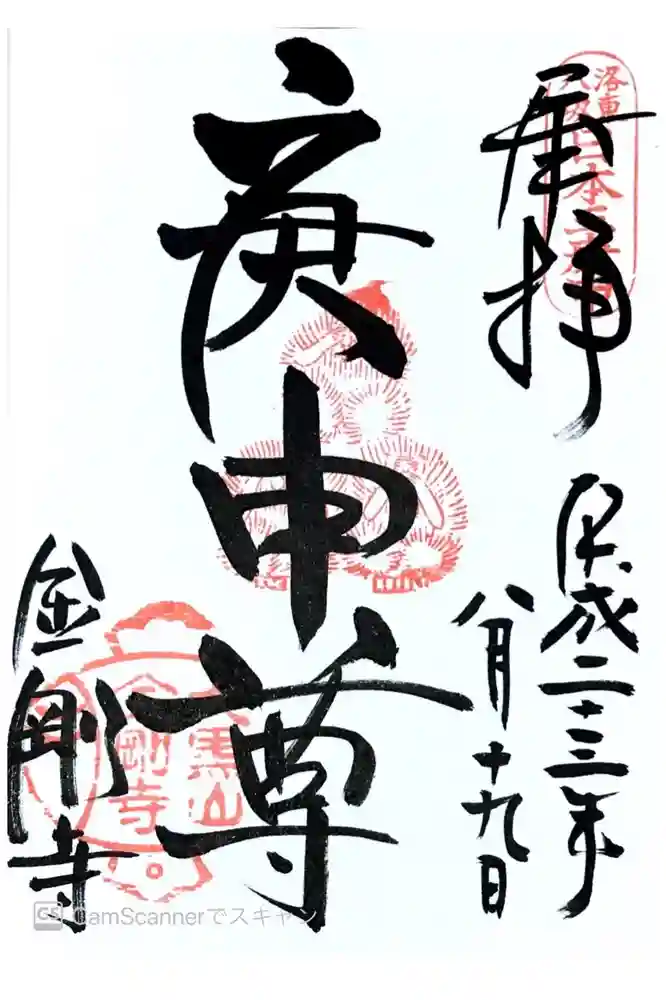 奉拝
平成二十三年
八月十九日
庚申尊
金剛寺
洛東
日本三庚申
大黒山
金剛寺
CS CamScannerでスキャン